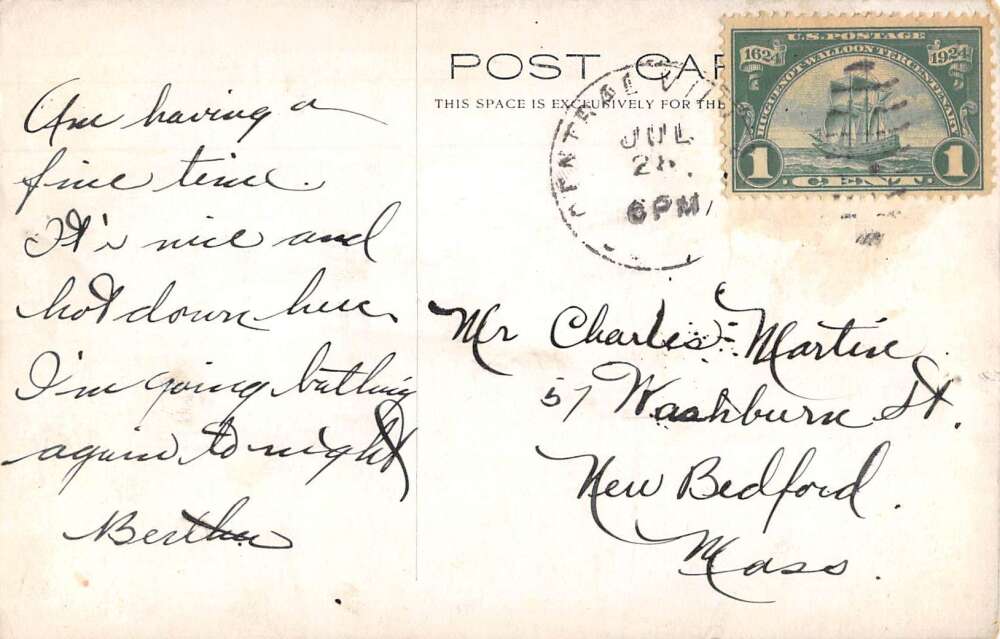 Am having a
fine time.
It's nice and
hot down here.
I'm going bathing
again to night
Bertha
POST CAR
THIS SPACE IS EXCLUSIVELY FOR THE
JUL
6PM
U.S. POSTAGE
1624 1924
HUGUENOT-WALLOON TERCENTENARY
1 CENT 1
Mr Charles Martin
57 Washburn St.
New Bedford.
Mass.